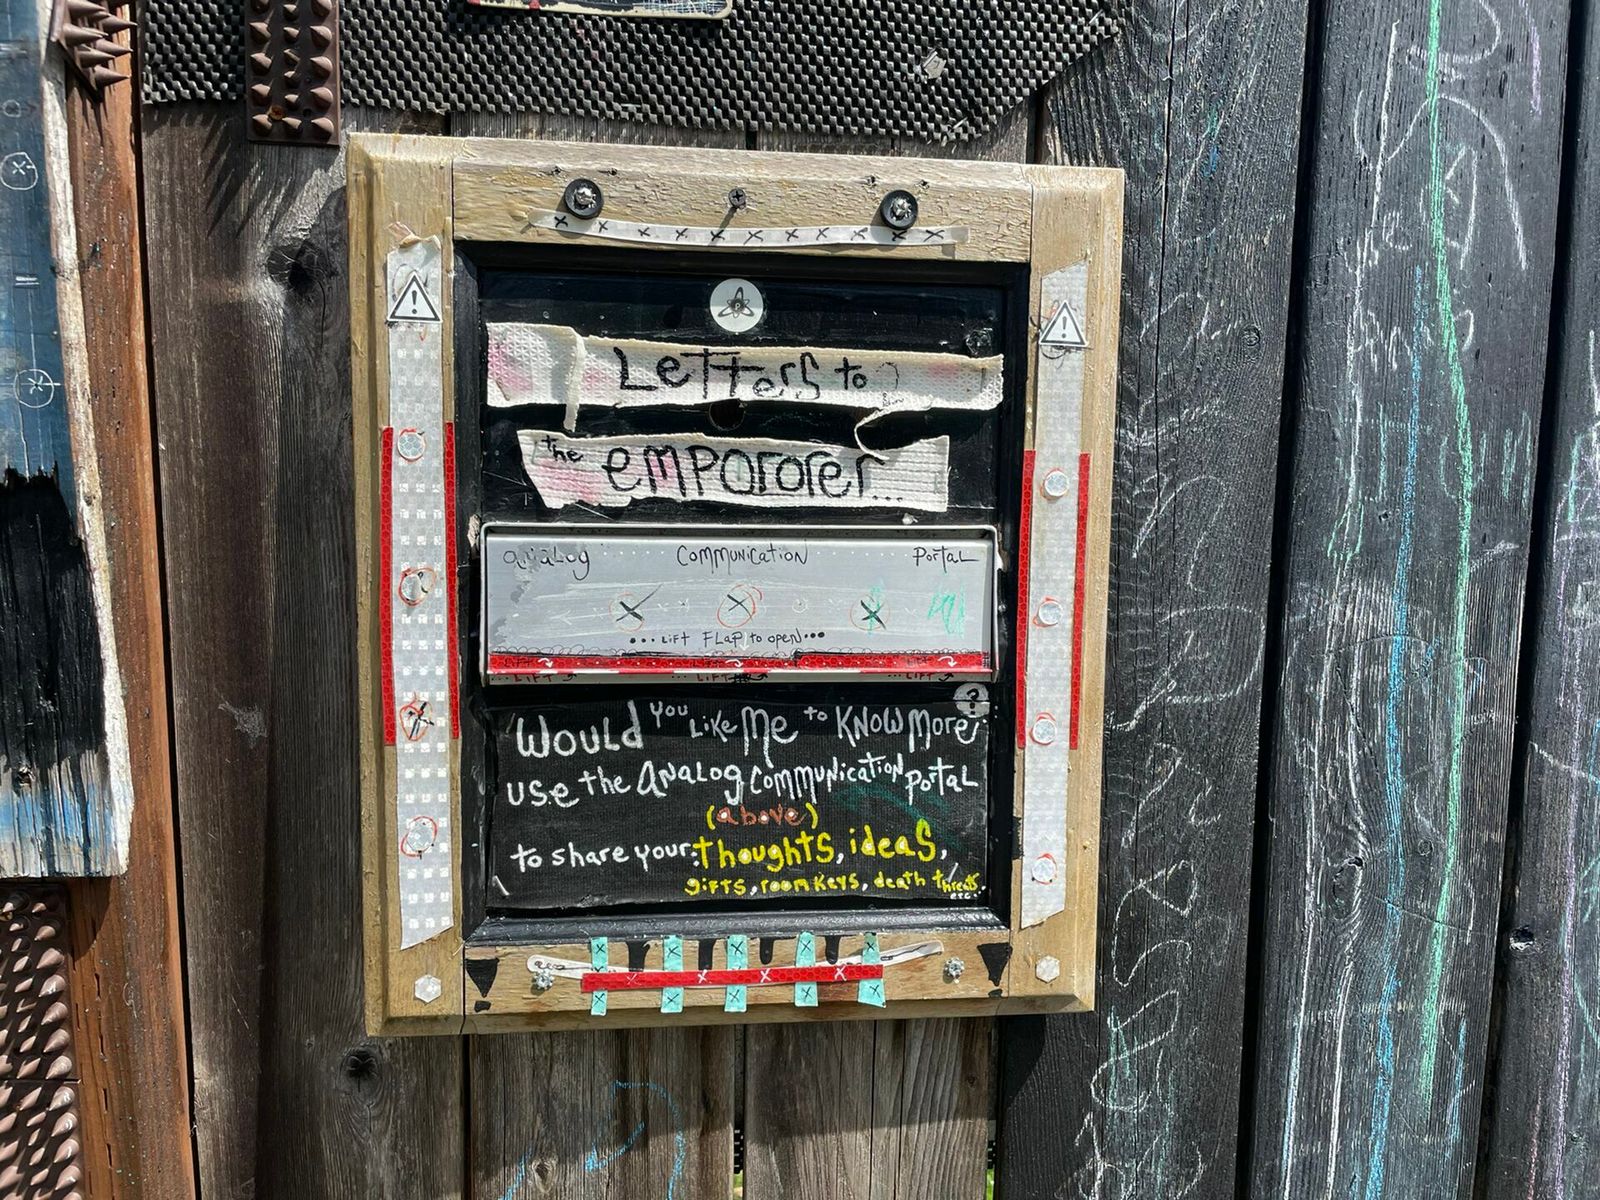 LeTTers to
the empororer...
analog communication Portal
...Lift FLaP to open...
LIFT LIFT LIFT
...LIFT ...LIFT ...LIFT
?
Would you Like Me to Know More
use the Analog communication portal
(above)
to share your: thoughts, ideas,
gifts, room keys, death threats,
etc.